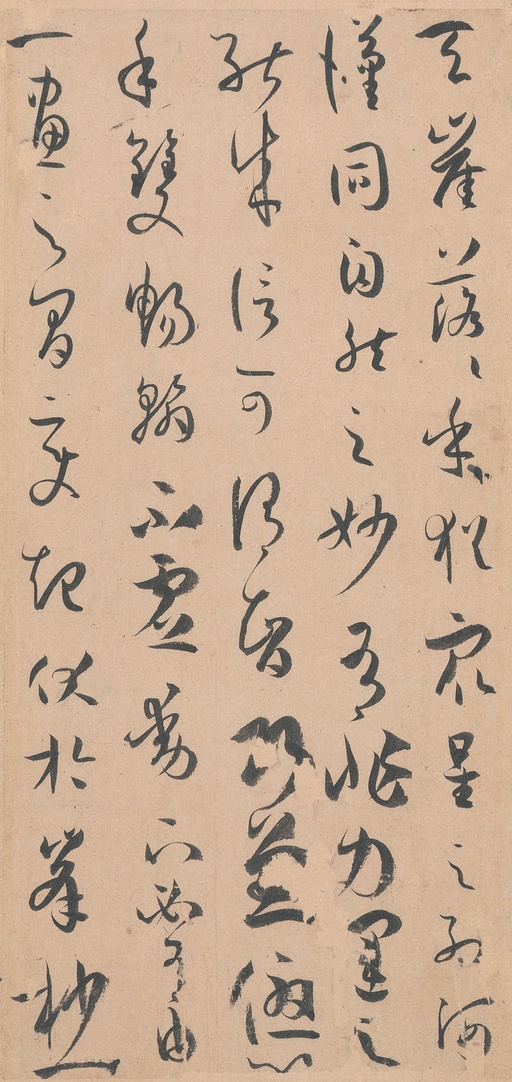 天崖落〻乎猶衆星之列河
漢同自然之妙有非力運之
能成信可謂智巧兼優心
手雙暢翰不虛動下必有由
一畫之間變起伏於峯杪一